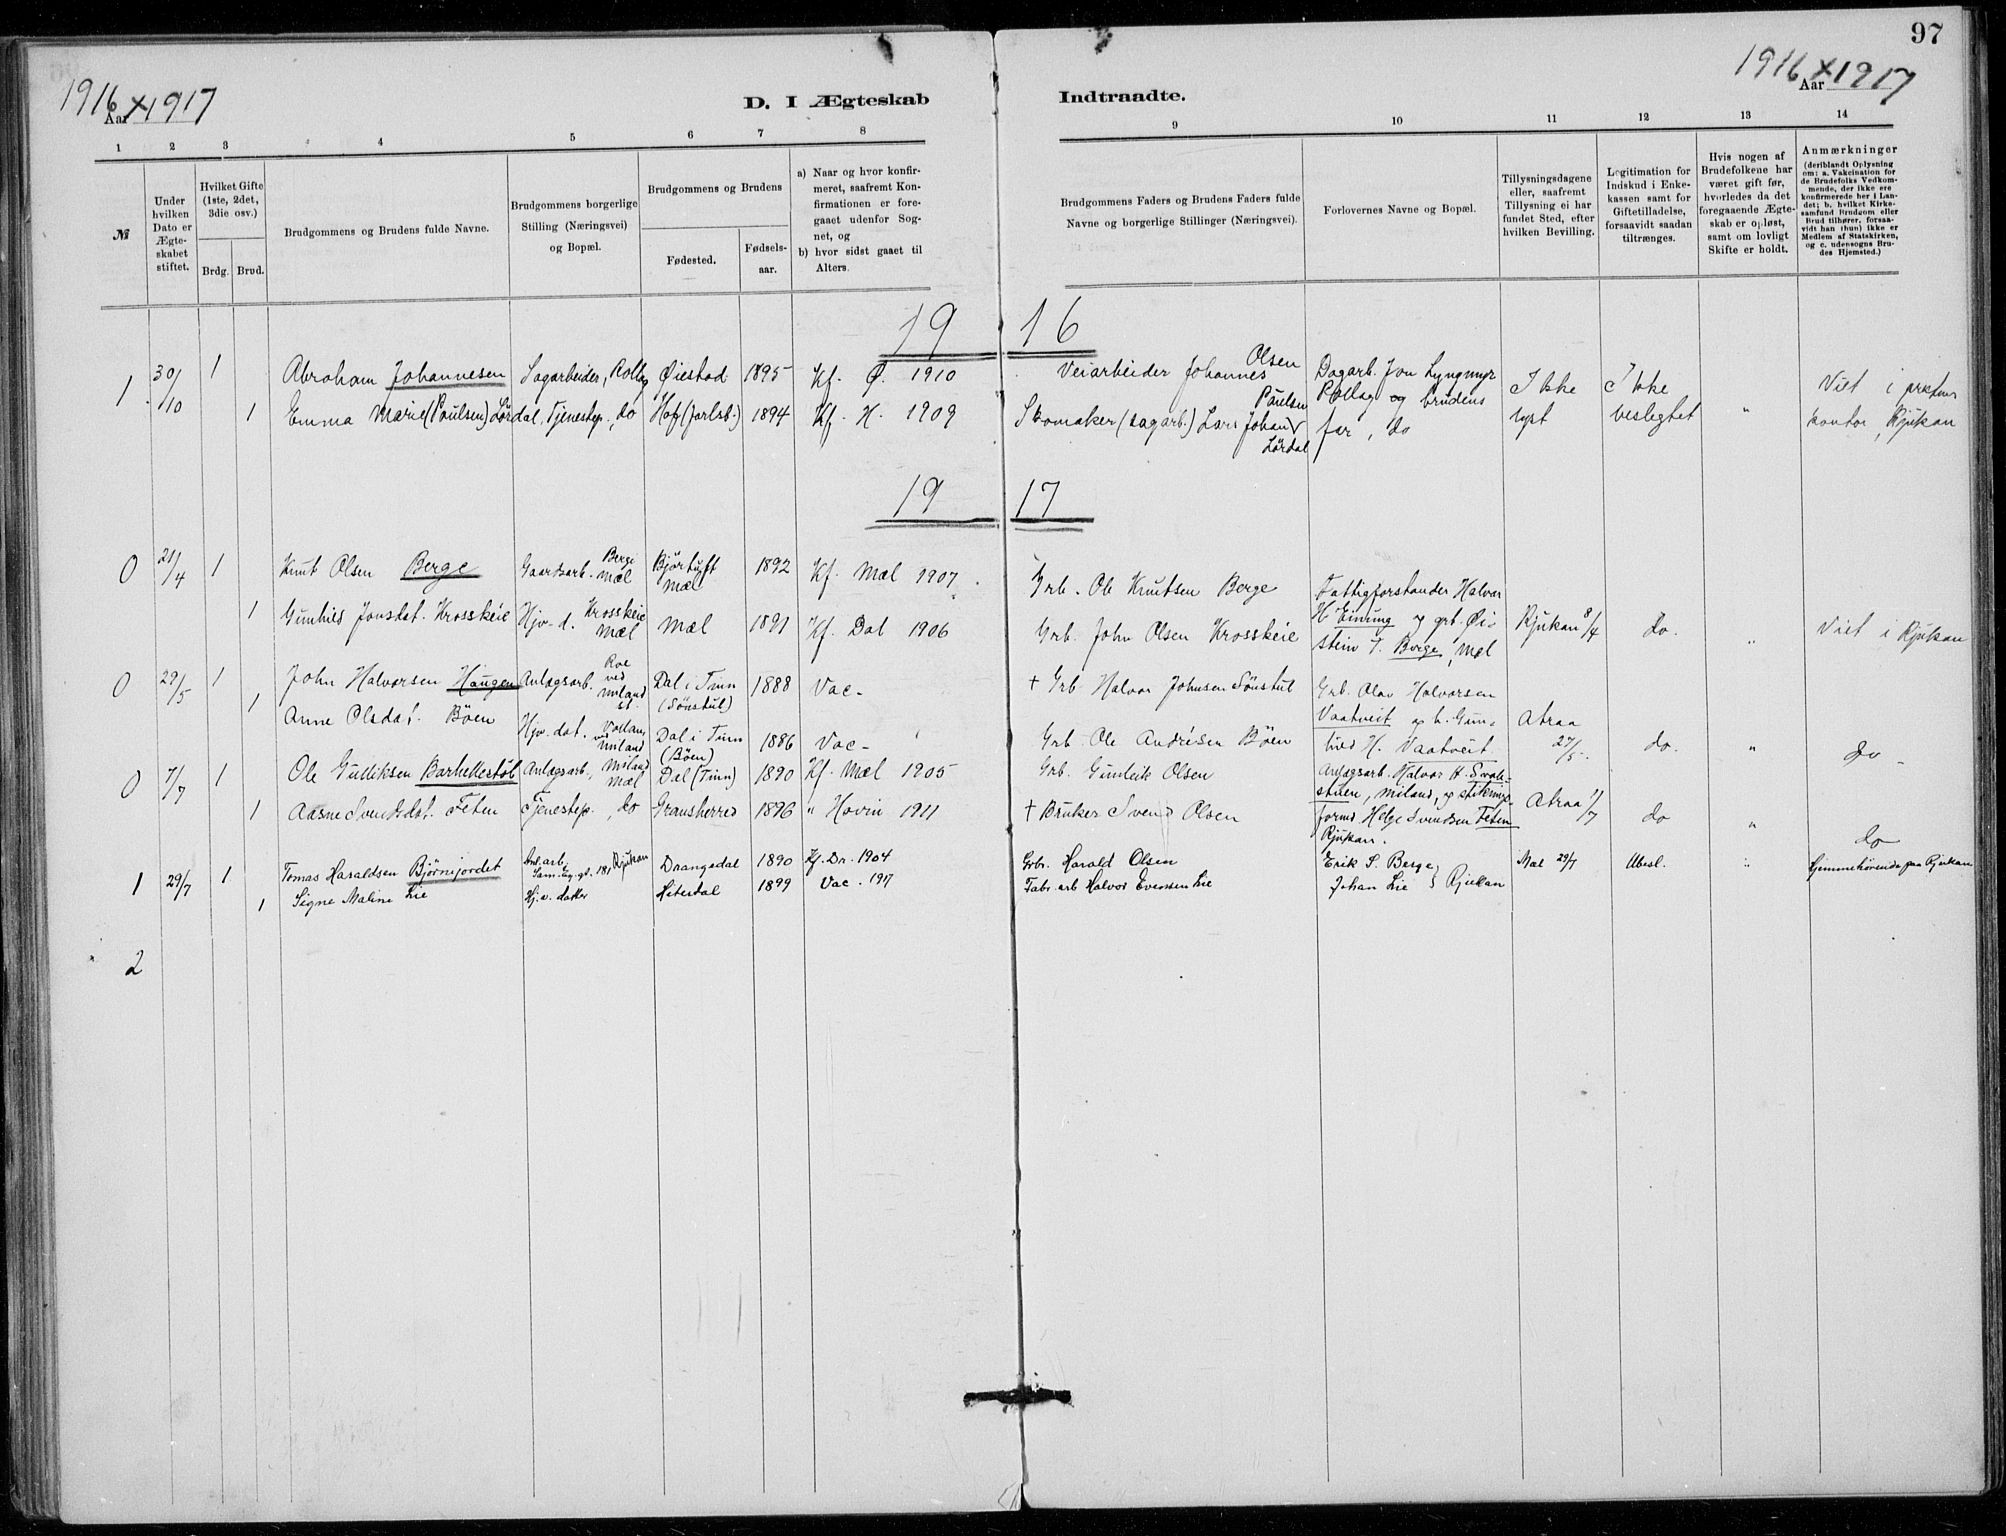 97
1916 x 1917
Aar
D. I Ægteskab
Indtraadte.
1916 x 1917
Aar
1 2 3 4 5 6 7 8 9 10 11 12 13 14
№
Under hvilken Dato er Ægteskabet stiftet.
Hvilket Gifte (1ste, 2det, 3die osv.)
Brdg. Brud.
Brudgommens og Brudens fulde Navne.
Brudgommens borgerlige Stilling (Næringsvei) og Bopæl.
Brudgommens og Brudens
Fødested.
Fødselsaar.
a) Naar og hvor konfirmeret, saafremt Konfirmationen er foregaaet udenfor Sognet, og
b) hvor sidst gaaet til Alters.
Brudgommens Faders og Brudens Faders fulde Navne og borgerlige Stillinger (Næringsvei).
Forlovernes Navne og Bopæl.
Tillysningsdagene eller, saafremt Tillysning ei har fundet Sted, efter hvilken Bevilling.
Legitimation for Indskud i Enkekassen samt for Giftetilladelse, forsaavidt saadan tiltrænges.
Hvis nogen af Brudefolkene har været gift før, hvorledes da det foregaaende Ægteskab er opløst, samt om lovligt Skifte er holdt.
Anmærkninger
(deriblandt Oplysning om: a. Vakcination for de Brudefolks Vedkommende, der ikke ere konfirmerede her i Landet; b. hvilket Kirkesamfund Brudgom eller Brud tilhører, forsaavidt han (hun) ikke er Medlem af Statskirken, og c. udensogns Brudes Hjemsted.)
19 16
1 30/10 1 Abraham Johannesen Sagarbeider, Rollag Øiestad 1895 Kf. Ø. 1910 Veiarbeider Johannes Olsen Dagarb. Jon Lyngmyr Ikke Ikke Viet i
1 Emma Marie (Paulsen) Lørdal, Tjenestep., do Hof (Jarlsb.) 1894 Kf. H. 1909 Skomaker (sagarb.) Lars Johan Paulsen Lørdal Rollag og brudens far, do lyst beslegtet " kontor, Rjukan
19 17
0 21/4 1 Knut Olsen Berge Gaardsarb. Berge Mæl Bjørtuft Mæl 1892 Kf. Mæl 1907. Grb. Ole Knutsen Berge Fattigforstander Halvor
1 Gunhild Jonsdat. Krosskeie Hjv-d. Krosskeie Mæl Mæl 1891 Kf. Dal 1906 Grb. John Olsen Krosskeie H Einung og grb. Øistein T. Berge, Mæl Rjukan 8/4 do. " Viet i Rjukan
0 29/5 1 John Halvorsen Haugen Anlægsarb. Roe ved Miland st. Dal i Tinn (Sönstul) 1888 Vac- + Grb. Halvor Johnsen Sönstul Grb. Olav Halvorsen
1 Anne Olsdat. Böen Hjv. dat. ved Miland Dal i Tinn (Böen) 1886 Vac- Grb. Ole Andrésen Böen Vaatveit og h. Gunhild H. Vaatveit. Atraa 27/5. do. " do
0 7/7 1 Ole Gulliksen Barhellertöl Anlægsarb., Miland Mæl Dal (Tinn) 1890 Kf. Mæl 1905 Grb. Gunleik Olsen Anlægsarb. Halvor H.
1 Aasne Svendsdat. Feten Tjenestep., do Gransherred 1896 " Hovin 1911 + Bruker Svend Olsen stuen, Miland, og formd Helge Svendsen Feten Rjukan. Atraa 1/7 do " do
1 29/7 1 Tomas Haraldsen Björnejordet Anl.arb. Sam. Eg. gt. 181, Rjukan Drangedal 1890 Kf. Dr. 1904 Grbr. Harald Olsen Erik S. Berge Mæl 29/7 Ubesl. " Hjemmehörende paa Rjukan
1 Signe Maline Lie Hj. v. datter Hitterdal 1899 Vac. 1917 Fabr. arb Halvor Evensen Lie Johan Lie } Rjukan
2